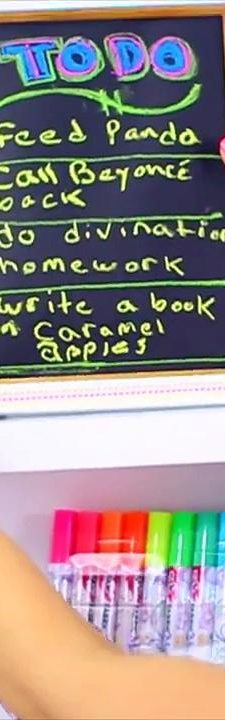 TO DO
Feed Panda
Call Beyoncé
back
do divination
homework
write a book
on caramel
apples